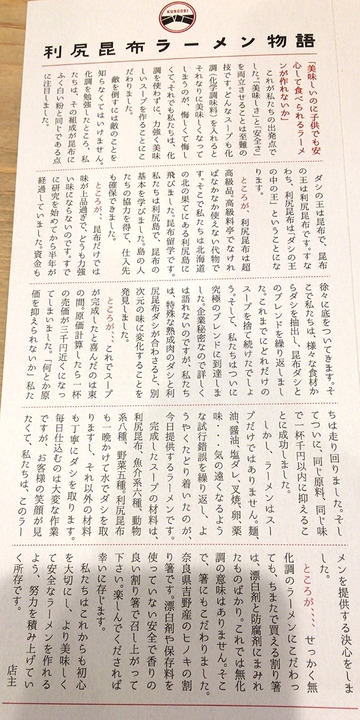 KUNGOBI
利尻昆布ラーメン物語
「美味しいのに子供でも安
心して食べられるラーメ
ンが作れないか」
これが私たちの出発点で
した。「美味しさ」と「安全さ」
を両立させることは至難の
技です。どんなスープも化
調（化学調味料）を入れると
それなりに美味しくなって
しまうのが、悔しくて悔し
くて。それでも私たちは、化
調を使わずに、力強く美味
しいスープを作ることにこ
だわりました。
敵を倒すには敵のことを
知らなくてはいけません。
化調を勉強したところ、私
たちは、その組成が昆布に
ふく白い粉と同じである点
に注目しました。
ダシの王は昆布で、昆布
の王は利尻昆布です。すな
わち、利尻昆布は「ダシの王
の中の王」ということにな
ります。
ところが、利尻昆布は超
高級品。高級料亭でなけれ
ばなかなか使えない代物で
す。そこで私たちは北海道
の北の果てにある利尻島に
飛びました。昆布留学です。
私たちは利尻島で、昆布の
基本を学びました。島の人
たちの協力を得て、仕入先
も確保できました。
ところが、昆布だけでは
味が上品過ぎて、どうも力強
い味にならないのです。すで
に研究を始めてから半年が
経過していました。資金も
徐々に底をついてきます。そ
こで私たちは、様々な食材か
らダシを抽出し、昆布ダシと
のブレンドを繰り返しまし
た。これまでにどれだけの
スープを捨て続けたでしょ
う。そして、私たちはついに
究極のブレンドに到達しま
した。企業秘密なので詳しく
は語れないのですが、私たち
は、特殊な熟成肉のダシと利
尻昆布ダシが合わさると、別
次元の味に変化することを
発見しました。
ところが、これでスープ
が完成したと喜んだのは束
の間、原価計算したら一杯
の売価が三千円近くになっ
てしまいました。「何とか原
価を抑えられないか」私た
ちは走り回りました。そし
てついに、同じ原料、同じ味
で一杯千円以内に抑えるこ
とに成功しました。
しかし、ラーメンはスー
プだけではありません。麺、
油、醤油、塩ダレ、叉焼、卵、薬
味・・・気の遠くなるよう
な試行錯誤を繰り返し、よ
うやくたどり着いたのが、
今日提供するラーメンです。
完成したスープの材料は、
利尻昆布、魚介系六種、動物
系八種、野菜五種。利尻昆布
も一晩かけて水でダシを取
りますし、それ以外の材料
も丁寧にダシを取ります。
毎日仕込むのは大変な作業
ですが、お客様の笑顔が見
たくて、私たちは、このラー
メンを提供する決心をしま
した。
ところが、・・・せっかく無
化調のラーメンにこだわっ
ても、ちまたで買える割り箸
は、漂白剤と防腐剤にまみれ
たものばかり。これでは無化
調の意味はありません。そこ
で、箸にもこだわりました。
奈良県吉野産のヒノキの割
り箸です。漂白剤も保存料も
使っていない安全で香りの
良い割り箸で召し上がって
下さい。楽しんでくだされば
幸いに存じます。
私たちはこれからも初心
を大切にし、より美味しく
て安全なラーメンを作れる
よう、努力を積み上げてい
く所存です。
店主